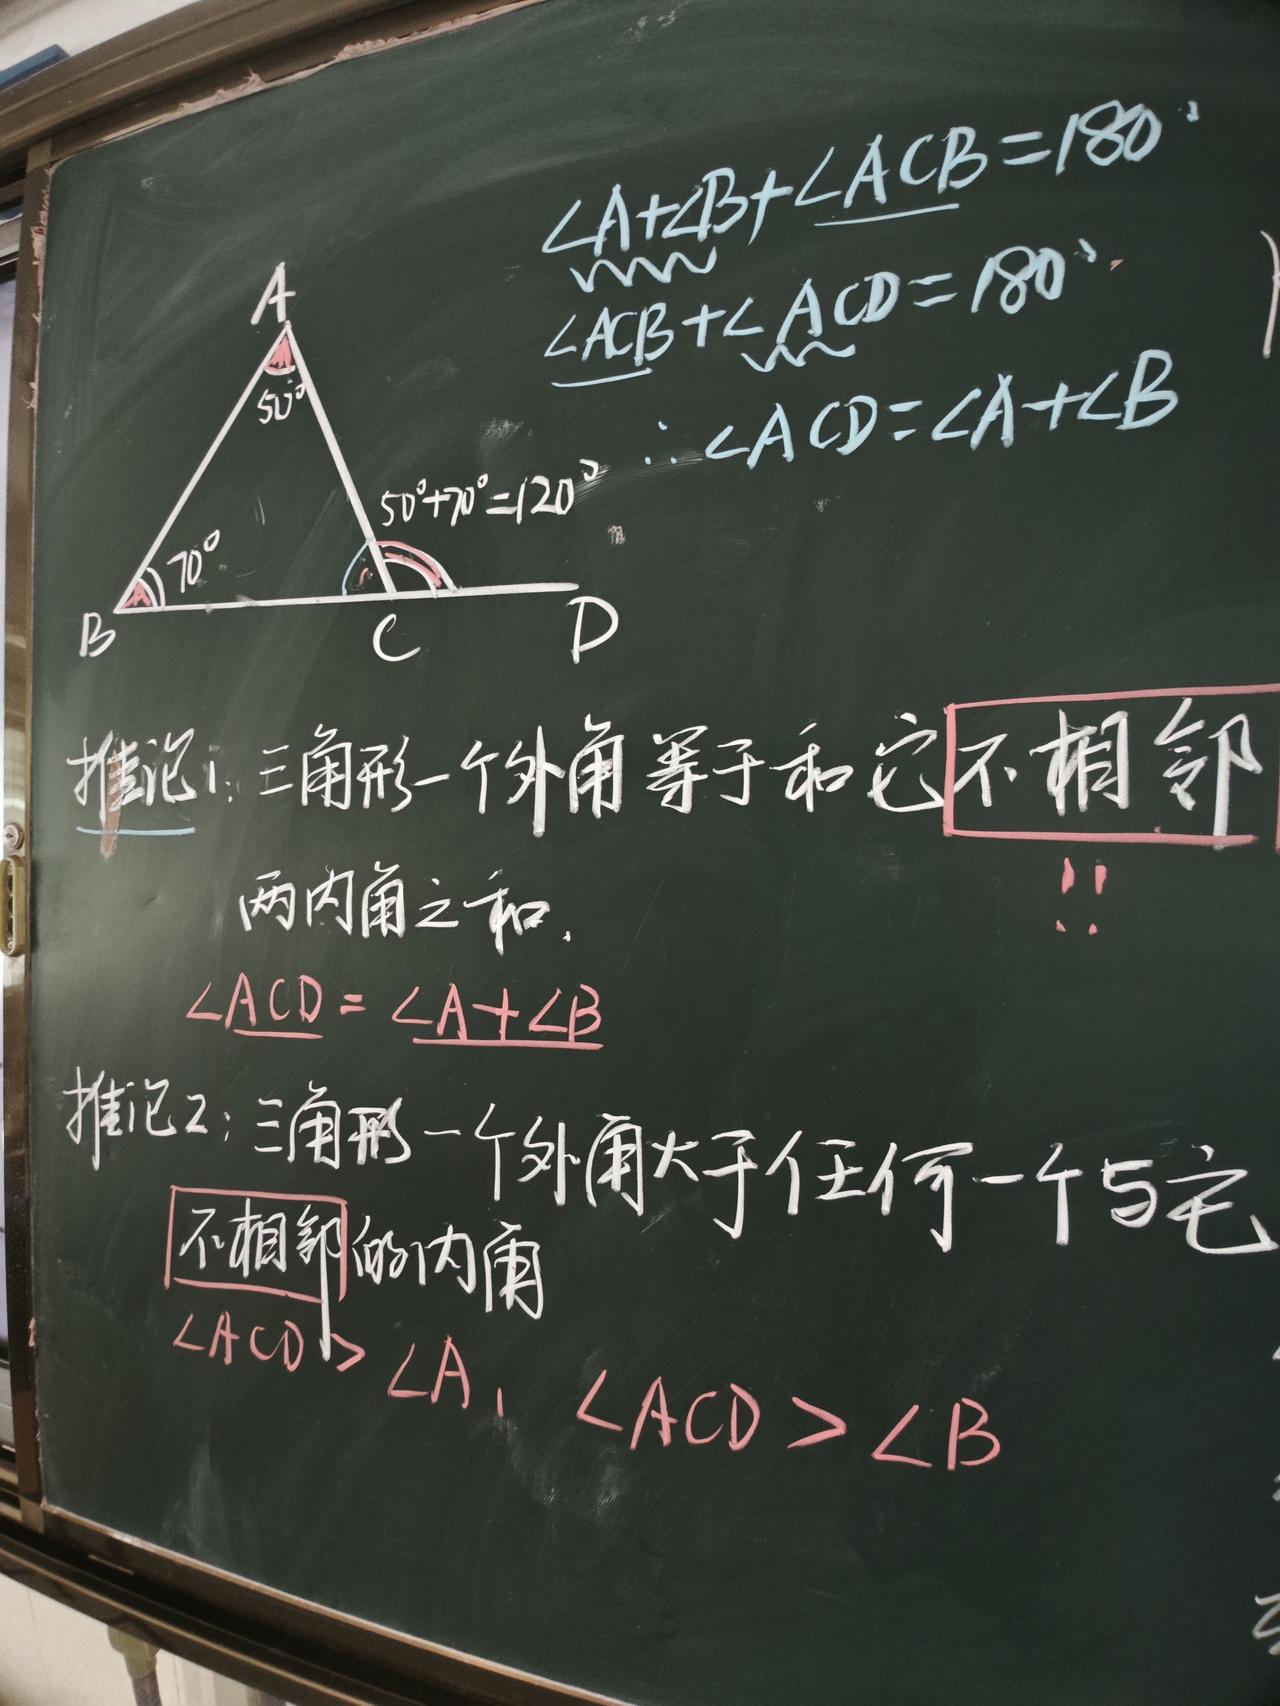 ∠A+∠B+∠ACB=180°
∠ACB+∠ACD=180°
∴∠ACD=∠A+∠B
A
50°
50°+70°=120°
70°
B
C
D
推论1:三角形一个外角等于和它不相邻
两内角之和.
!!
∠ACD=∠A+∠B
推论2:三角形一个外角大于任何一个与它
不相邻的内角
∠ACD>∠A, ∠ACD>∠B